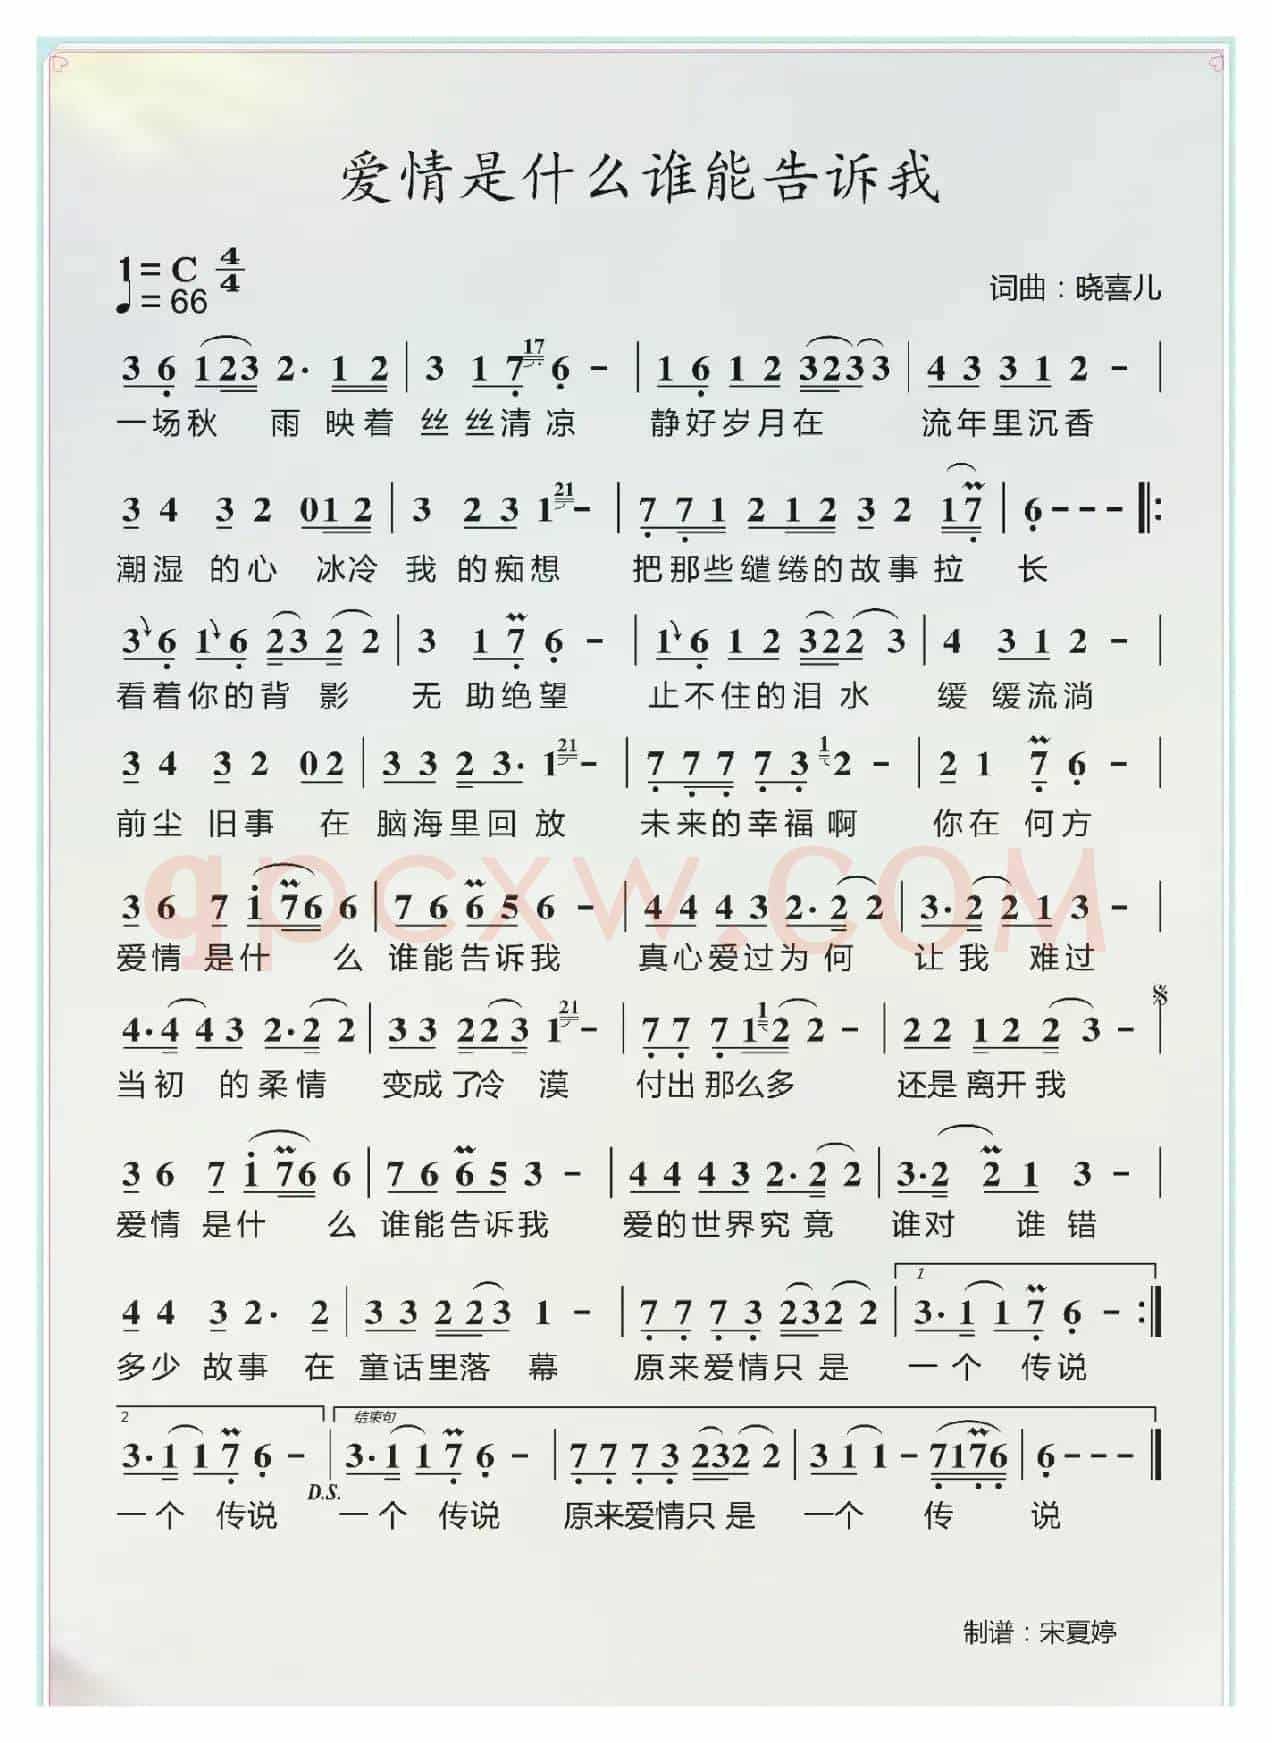 爱情是什么谁能告诉我
1=C 4/4
♩=66
词曲：晓喜儿
3 6 123 2· 1 2 | 3 1 7 17 6 - | 1 6 1 2 3233 | 4 3 3 1 2 - |
一场秋 雨 映着 丝丝清凉 静好岁月在 流年里沉香
3 4 3 2 012 | 3 2 3 1 21 - | 7 71 212 3 2 17 | 6 - - - ‖:
潮湿 的心 冰冷 我的痴想 把那些缱绻的故事拉 长
3 6 1 6 23 2 2 | 3 1 7 6 - | 1 6 1 2 322 3 | 4 3 1 2 - |
看着你的背 影 无 助绝望 止不住的泪水 缓 缓流淌
3 4 3 2 02 | 3 3 2 3· 1 21 - | 7 7 7 7 3 1 2 - | 2 1 7 6 - |
前尘 旧事 在 脑海里回放 未来的幸福啊 你在 何方
3 6 7 i 76 6 | 7 6 6 5 6 - | 4 4 4 3 2·2 2 | 3·2 2 1 3 - |
爱情 是什 么 谁能告诉我 真心爱过为何 让我 难过
4·4 4 3 2·2 2 | 3 3 22 3 1 21 - | 7 7 7 1 1 2 2 - | 2 2 1 2 2 3 - |
当初 的柔情 变成了冷 漠 付出那么多 还是离开我
3 6 7 i 76 6 | 7 6 6 5 3 - | 4 4 4 3 2·2 2 | 3·2 2 1 3 - |
爱情 是什 么 谁能告诉我 爱的世界究竟 谁对 谁错
1
4 4 3 2· 2 | 3 3 2 23 1 - | 7 7 7 3 232 2 | 3·1 1 7 6 - :‖
多少 故事 在 童话里落 幕 原来爱情只是 一个 传说
2 结束句
3·1 1 7 6 - | 3·1 1 7 6 - | 7 7 7 3 232 2 | 3 1 1 - 7176 | 6 - - - ‖
D.S.
一个 传说 一个 传说 原来爱情只是 一个 传 说
制谱：宋夏婷
qpcxw.COM